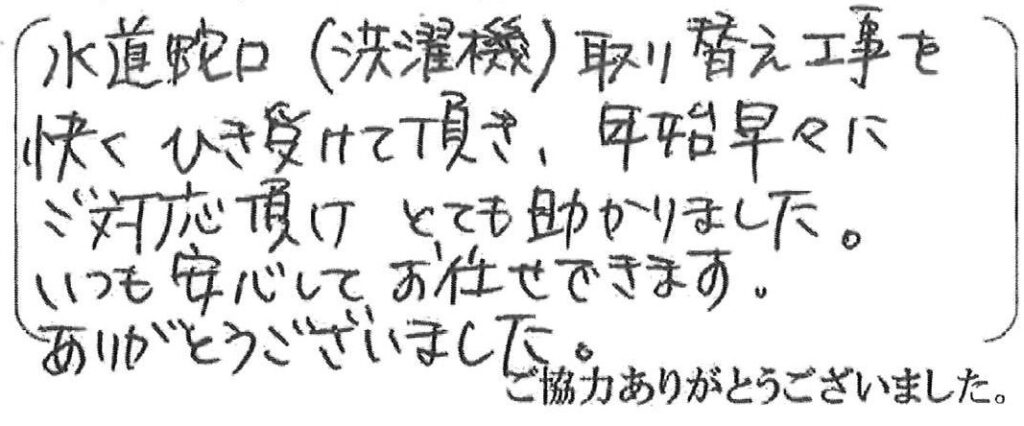 水道蛇口（洗濯機）取り替え工事を
快くひき受けて頂き、年始早々に
ご対応頂け とても助かりました。
いつも安心して お任せできます。
ありがとうございました。
ご協力ありがとうございました。